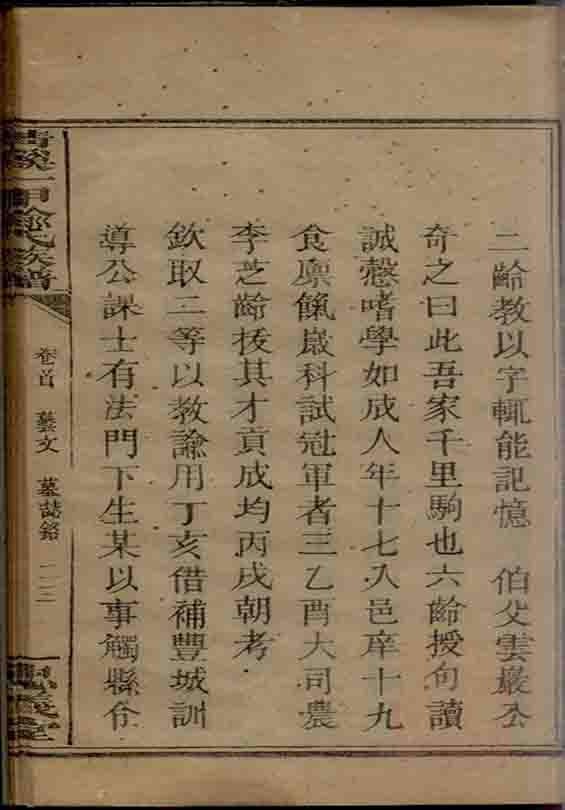 二齡教以字輒能記憶 伯父雲巖公
奇之曰此吾家千里駒也六齡授句讀
誠慤嗜學如成人年十七入邑庠十九
食廩餼嵗科試冠軍者三乙酉大司農
李芝齡拔其才貢成均丙戌朝考
欽取二等以教諭用丁亥借補豐城訓
導公課士有法門下生某以事觸縣令
族譜
卷首 藝文 墓誌銘